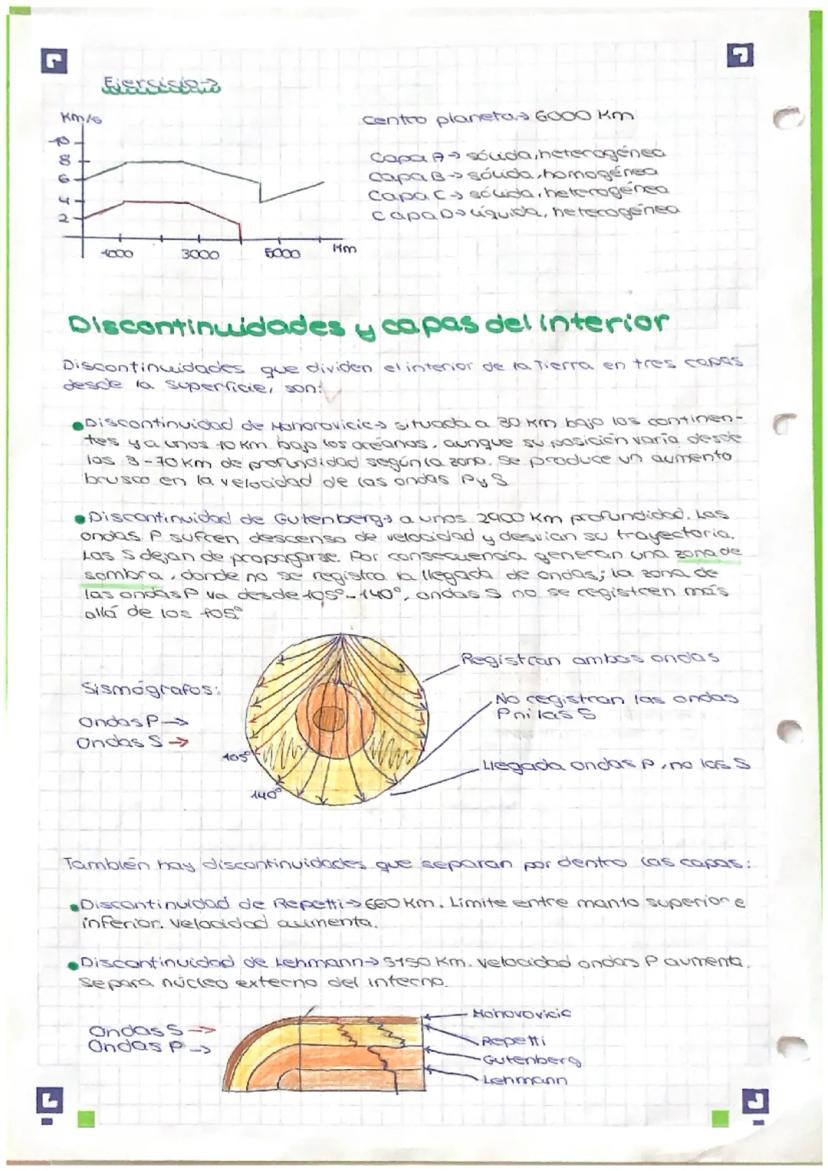 Ejercicio→
Km/s
10
8
6
4
2
1000
3000
5000
Km
Centro planeta→ 6000 Km
Capa A→ sólida, heterogénea
Capa B→ sólida, homogénea
Capa C→ sólida, heterogénea
Capa D→ líquida, heterogénea
Discontinuidades y capas del interior
Discontinuidades que dividen el interior de la Tierra en tres capas
desde la superficie, son:
•Discontinuidad de Mohorovicic→ situada a 30 Km bajo los continen-
tes y a unos 10 Km bajo los océanos, aunque su posición varía desde
los 3-70 Km de profundidad según la zona. Se produce un aumento
brusco en la velocidad de las ondas P y S
•Discontinuidad de Gutenberg→ a unos 2900 Km profundidad. Las
ondas P sufren descenso de velocidad y desvían su trayectoria.
Las S dejan de propagarse. Por consecuencia generan una zona de
sombra, donde no se registra la llegada de ondas; la zona de
las ondas P va desde 105°-140°, ondas S no se registren más
allá de los 105°
Sismógrafos:
Ondas P→
Ondas S→
105°
140°
Registran ambas ondas
No registran las ondas
P ni las S
Llegada ondas P, no las S
También hay discontinuidades que separan por dentro las capas:
•Discontinuidad de Repetti→ 660 Km. Límite entre manto superior e
inferior. Velocidad aumenta.
•Discontinuidad de Lehmann→ 5150 Km. Velocidad ondas P aumenta.
Separa núcleo externo del interno.
Ondas S→
Ondas P→
Mohorovicic
Repetti
Gutenberg
Lehmann